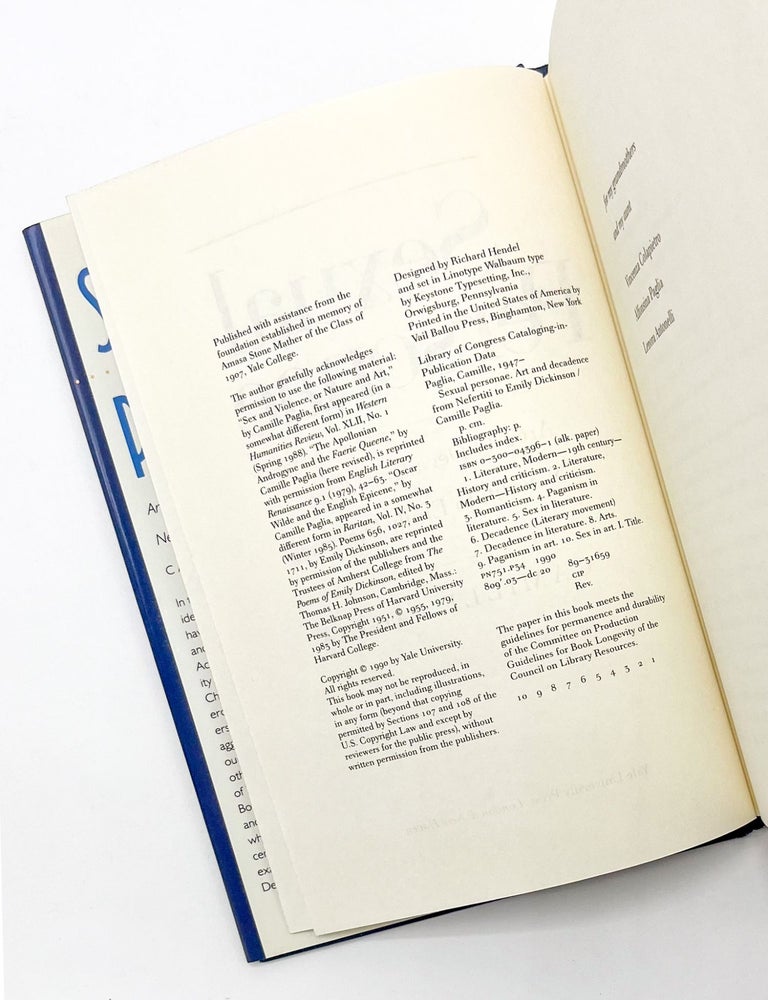 Published with assistance from the
foundation established in memory of
Amasa Stone Mather of the Class of
1907, Yale College.
The author gratefully acknowledges
permission to use the following material:
"Sex and Violence, or Nature and Art,"
by Camille Paglia, first appeared (in a
somewhat different form) in Western
Humanities Review, Vol. XLII, No. 1
(Spring 1988). "The Apollonian
Androgyne and the Faerie Queene," by
Camille Paglia (here revised), is reprinted
with permission from English Literary
Renaissance 9.1 (1979), 42–63. "Oscar
Wilde and the English Epicene," by
Camille Paglia, appeared in a somewhat
different form in Raritan, Vol. IV, No. 3
(Winter 1985). Poems 656, 1027, and
1711, by Emily Dickinson, are reprinted
by permission of the publishers and the
Trustees of Amherst College from The
Poems of Emily Dickinson, edited by
Thomas H. Johnson, Cambridge, Mass.:
The Belknap Press of Harvard University
Press, Copyright 1951, © 1955, 1979,
1983 by The President and Fellows of
Harvard College.
Copyright © 1990 by Yale University.
All rights reserved.
This book may not be reproduced, in
whole or in part, including illustrations,
in any form (beyond that copying
permitted by Sections 107 and 108 of the
U.S. Copyright Law and except by
reviewers for the public press), without
written permission from the publishers.
Designed by Richard Hendel
and set in Linotype Walbaum type
by Keystone Typesetting, Inc.,
Orwigsburg, Pennsylvania
Printed in the United States of America by
Vail Ballou Press, Binghamton, New York
Library of Congress Cataloging-in-
Publication Data
Paglia, Camille, 1947–
Sexual personae. Art and decadence
from Nefertiti to Emily Dickinson /
Camille Paglia.
p. cm.
Bibliography: p.
Includes index.
ISBN 0–300–04396–1 (alk. paper)
1. Literature, Modern—19th century—
History and criticism. 2. Literature,
Modern—History and criticism.
3. Romanticism. 4. Paganism in
literature. 5. Sex in literature.
6. Decadence (Literary movement)
7. Decadence in literature. 8. Arts.
9. Paganism in art. 10. Sex in art. I. Title.
PN751.P34 1990
809'.03—dc 20 89–31659
CIP
Rev.
The paper in this book meets the
guidelines for permanence and durability
of the Committee on Production
Guidelines for Book Longevity of the
Council on Library Resources.
10 9 8 7 6 5 4 3 2 1
for my grandmothers
and my aunt
Vincenza Colapietro
Alfonsina Paglia
Lenora Antonelli